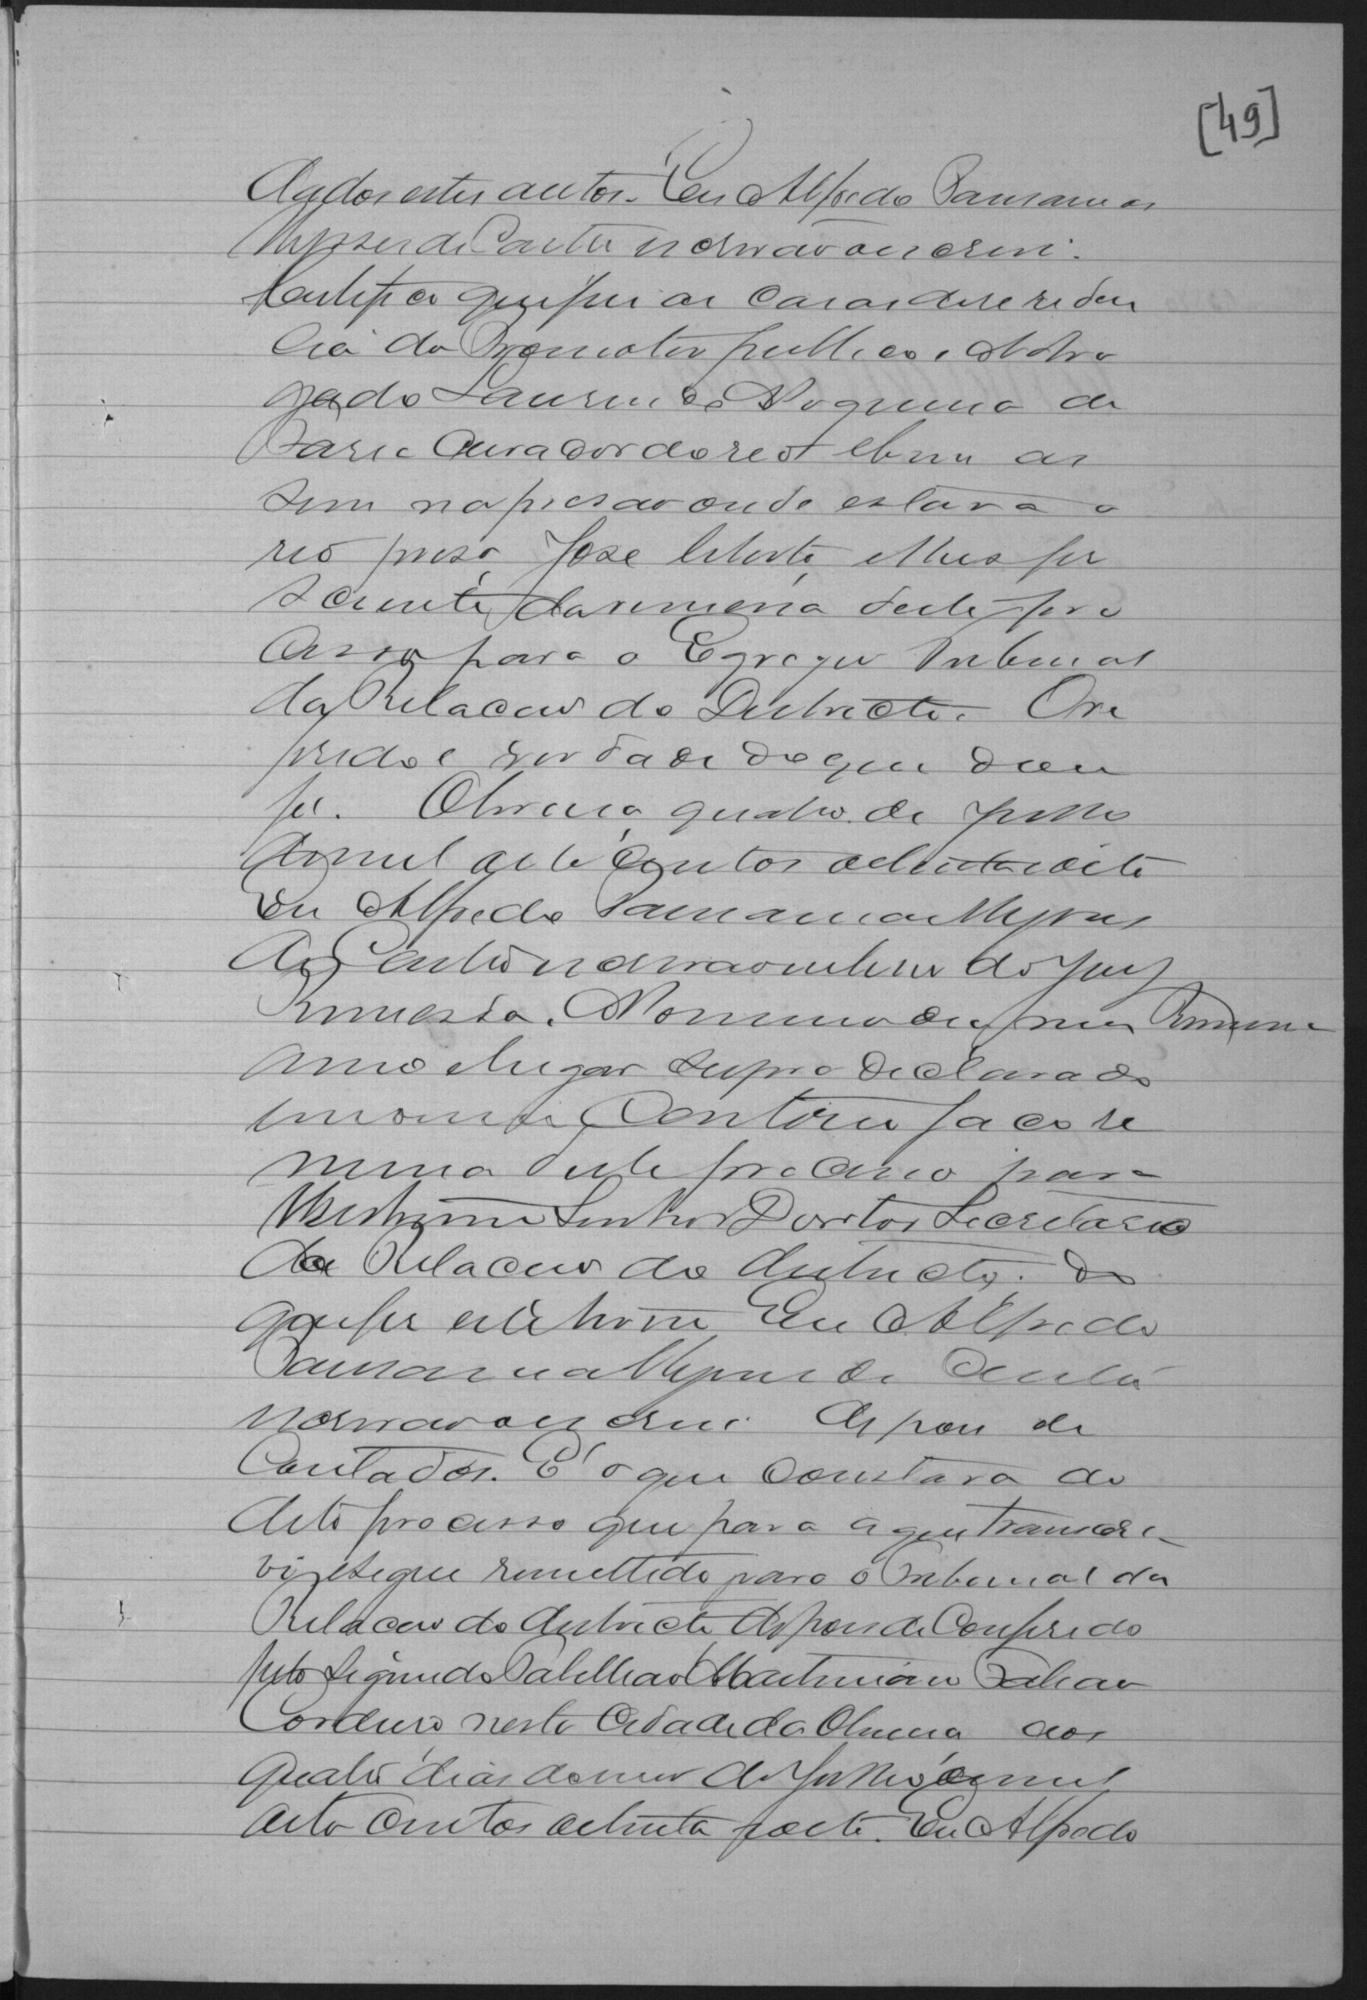 [49]
dados estes autos. Eu Alfredo
de Castro escrivão escrevi.
Certifico que fui as casas de residen
cia do Promotor publico, Advo
gado Laurindo Nogueira de
Faria Curador do reo e bem as
sim na prisão onde estava o
reo preso José Alberto
sciente da remessa deste pro
cesso para o Egregio Tribunal
da Relacão do Districto. O re
ferido é verdade do que dou
fé. Oliveira quatro de Julho
de mil oito centos oitenta e oito
Eu Alfredo
de Castro escrivão escrevi do Jury
Remessa. No mesmo dia mez
anno e lugar supra declarado
em meu Cartorio faço re
messa deste processo para
Senhor Doutor Secretario
da Relacão do districto. Do
que fiz este termo Eu Alfredo
de Castro
escrivão escrevi. Depois de
Contados. É o que constava do
dito processo que para aqui transcre-
vi e segue remettido para o Tribunal da
Relacão do districto depois de Conferido
pelo Segundo Tabellião
Cardoso nesta Cidade da Oliveira aos
quatro dias do mez de Julho de mil
oito centos oitenta e oito. Eu Alfredo